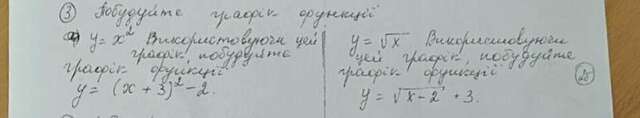 ③ Побудуйте графік функції
а) y = x² Використовуючи цей
графік, побудуйте
графік функції
y = (x + 3)² - 2.
y = √x Використовуючи
цей графік, побудуйте
графік функції
y = √x-2 + 3.